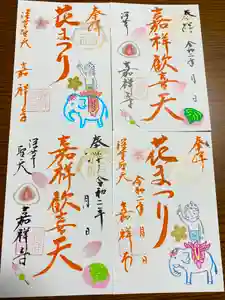 奉拝
花まつり
浅草聖天
嘉祥寺
奉拝
令和二年 月 日
嘉祥歓喜天
嘉祥寺
奉拝
令和二年
月 日
嘉祥歓喜天
聖天
嘉祥寺
奉拝
花まつり
令和二年 月 日
嘉祥寺